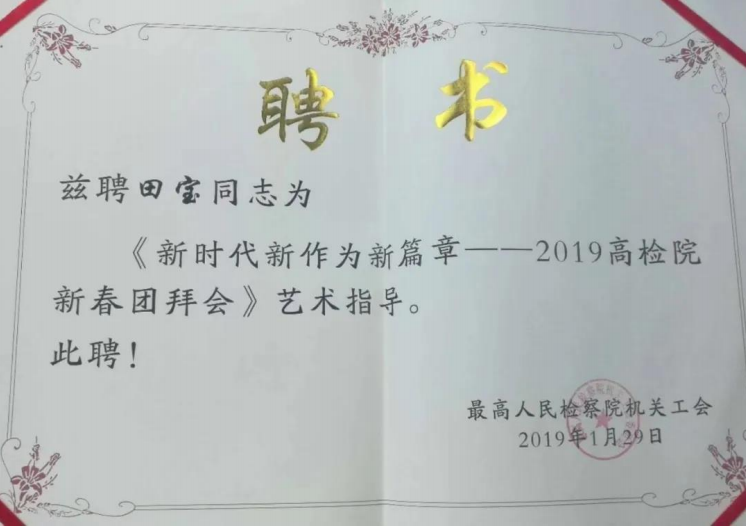 聘书
兹聘田宝同志为
《新时代新作为新篇章——2019高检院
新春团拜会》艺术指导。
此聘!
最高人民检察院机关工会
2019年1月29日